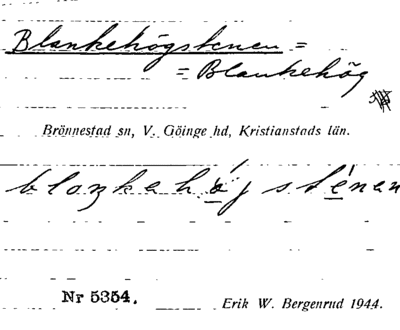 Blankehögstenen =
= Blankehög
Brönnestad sn, V. Göinge hd, Kristianstads län.
blaŋkahǫ́jstę́nan
Nr 5354.
Erik W. Bergenrud 1944.